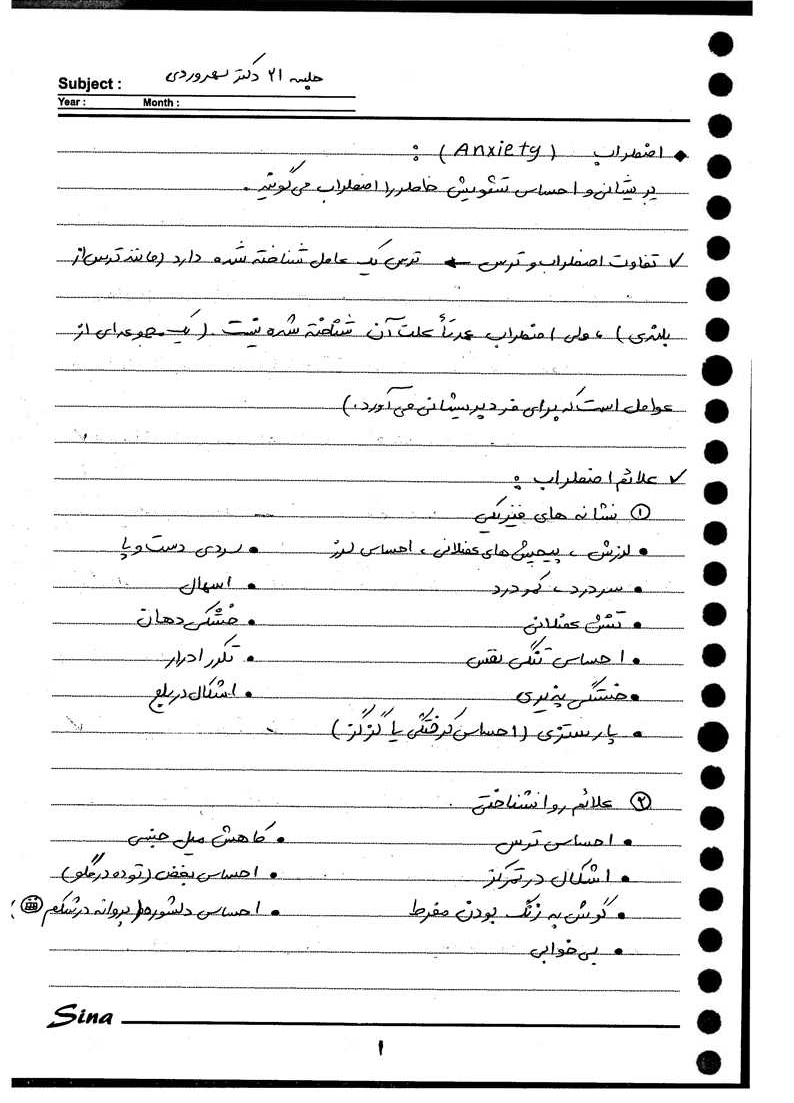 Subject : جلسه ۲۱ دکتر سهروردی
Year : Month :
◆ اضطراب (Anxiety) :
پریشانی و احساس تشویش خاطر را اضطراب می‌گویند.
✓ تفاوت اضطراب و ترس ← ترس یک عامل شناخته شده دارد (مانند ترس از
بلندی) ، ولی اضطراب عمدتاً علت آن شناخته شده نیست. (یک مجموعه‌ای از
عوامل است که برای فرد پریشانی می‌آورد.)
✓ علائم اضطراب :
① نشانه های فیزیکی
• لرزش ، پیچش‌های عضلانی ، احساس لرز • سردی دست و پا
• سردرد ، کمردرد • اسهال
• تنش عضلانی • خشکی دهان
• احساس تنگی نفس • تکرر ادرار
• خستگی پذیری • اشکال در بلع
• پارستزی (احساس کرختگی یا گزگز)
② علائم روانشناختی
• احساس ترس • کاهش میل جنسی
• اشکال در تمرکز • احساس بغض (توده در گلو)
• گوش به زنگ بودن مفرط • احساس دلشوره (پروانه در شکم)
• بی‌خوابی
Sina
۱